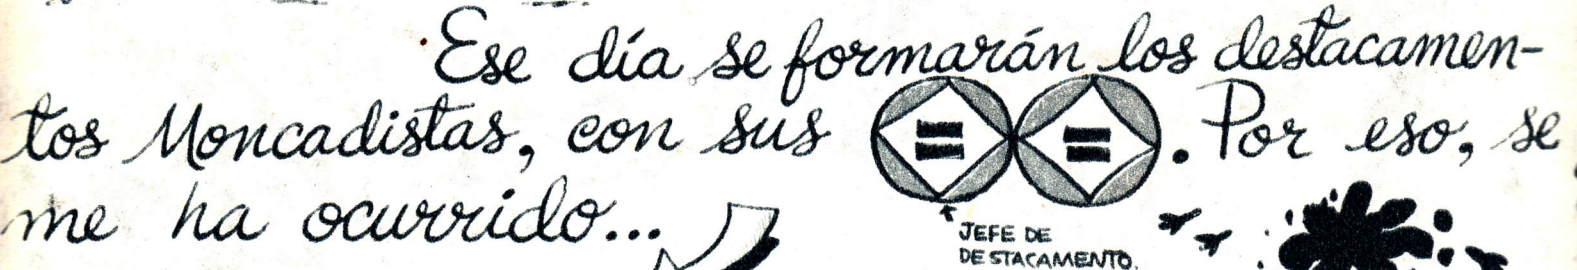 Ese día se formarán los destacamen-
tos Moncadistas, con sus . Por eso, se
me ha ocurrido...
JEFE DE
DESTACAMENTO.